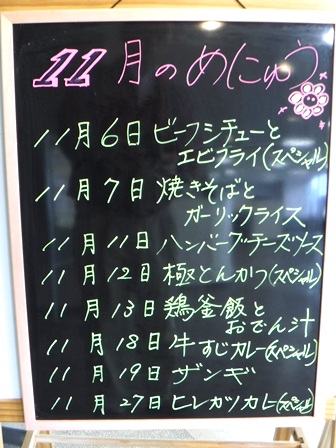 11月のめにゅう
11月6日 ビーフシチューと
エビフライ(スペシャル)
11月7日 焼きそばと
ガーリックライス
11月11日 ハンバーグチーズソース
11月12日 極とんかつ(スペシャル)
11月13日 鶏釜飯と
おでん汁
11月18日 牛すじカレー(スペシャル)
11月19日 ザンギ
11月27日 ヒレカツカレー(スペシャル)